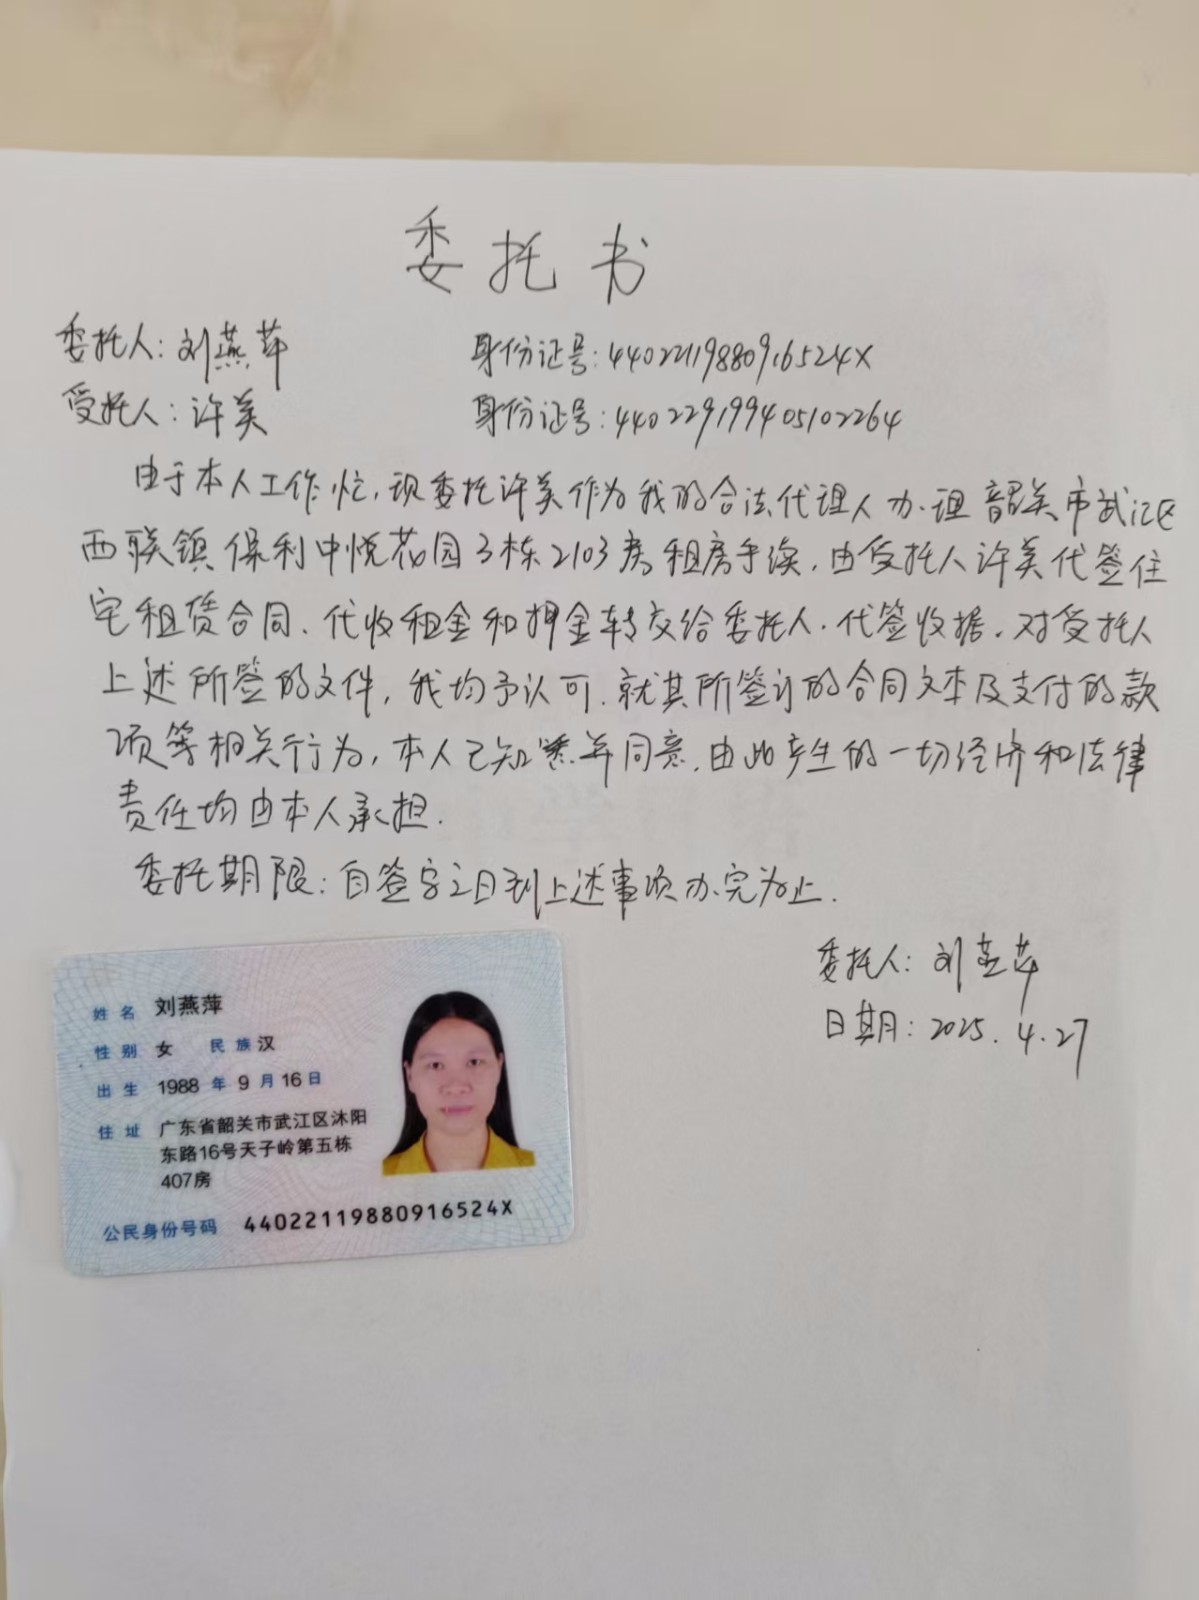 委托书
委托人：刘燕萍 身份证号：44022119880916524X
受托人：许美 身份证号：440229199405102264
由于本人工作忙，现委托许美作为我的合法代理人办理韶关市武江区
西联镇保利中悦花园3栋2103房租房手续，由受托人许美代签住
宅租赁合同、代收租金和押金转交给委托人．代签收据．对受托人
上述所签的文件，我均予认可．就其所签订的合同文本及支付的款
项等相关行为，本人已知悉并同意，由此产生的一切经济和法律
责任均由本人承担．
委托期限：自签字之日到上述事项办完为止．
委托人：刘燕萍
日期：2025.4.27
姓名 刘燕萍
性别 女 民族 汉
出生 1988年9月16日
住址 广东省韶关市武江区沐阳
东路16号天子岭第五栋
407房
公民身份号码 44022119880916524X